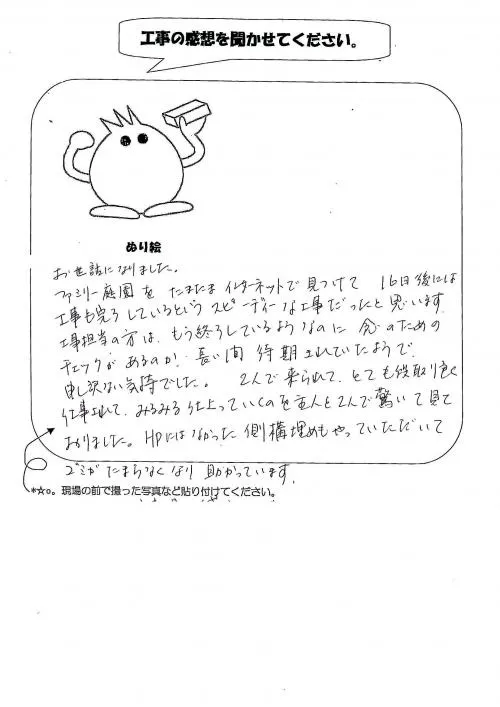 工事の感想を聞かせてください。
ぬり絵
お世話になりました。
ファミリー庭園を たまたま インターネットで見つけて 16日後には
工事も完了しているという スピーディーな工事だったと思います。
工事担当の方は、もう終了しているようなのに 念のための
チェックがあるのか、長い間 待期されていたようで
申し訳ない気持でした。 2人で来られて、とても段取り良く
仕事されて、みるみる仕上っていくのを主人と2人で驚いて見て
おりました。HPにはなかった 側構埋めもやっていただいて
ゴミがたまらなくなり 助かっています。
*☆○。現場の前で撮った写真など貼り付けてください。